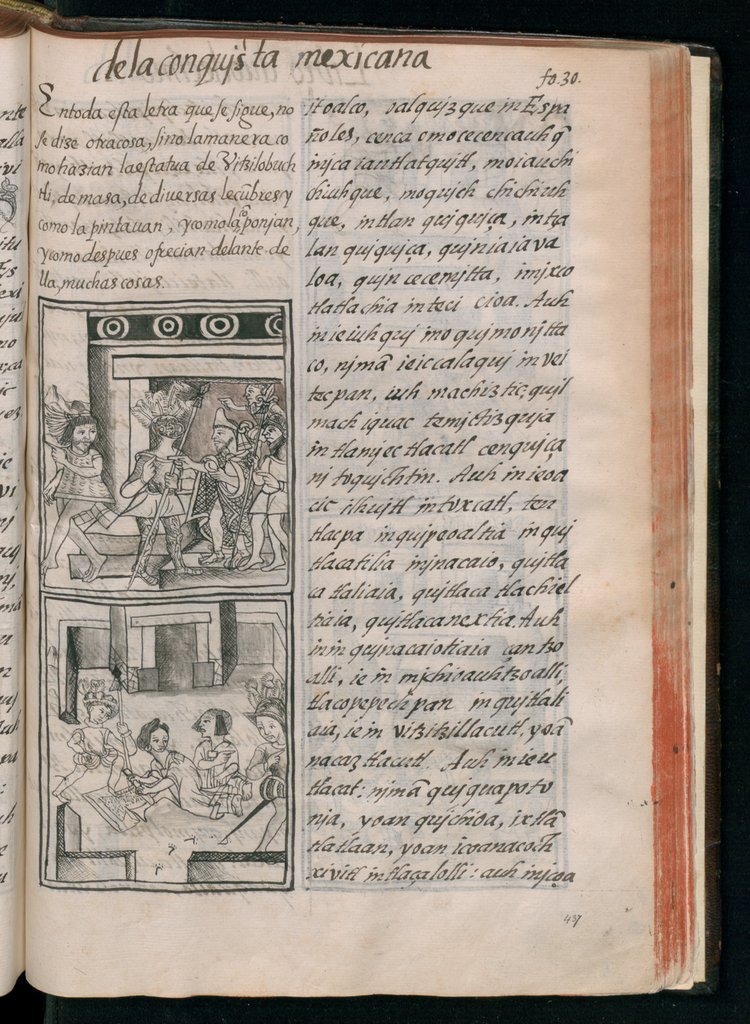 de la conquista mexicana
fo. 30.
En toda esta letra que se sigue, no
se dize otra cosa, sino la manera co
mo hazian la estatua de Vitzilobuch
tli, de masa, de diuersas lecũbres, y
como la pintauan, y como la cõponjan,
y como despues ofrecian delante de
lla, muchas cosas.
itoalco, valqujzque in Espa
ñoles, cenca omocecencauhq̃
mjca iautlatqujtl, moiauchi
chiuhque, moqujchchichiuh
que, intlan qujqujça, intza
lan qujqujça, qujniaiava
loa, qujncecemjtta, imjxco
tlatlachia in teci cioa. Auh
in ie iuhquj moqujmonjtta
co, njmã ie ic calaquj in vei
tecpan, iuh machiztic, qujl
mach iquac temjctizquja
in tlanjec tlacatl cenqujça
nj toqujchtin. Auh in ieoa
cic ilhujtl in tuxcatl, teu
tlacpa in qujpeoaltia in quj
tlacatilia injnacaio, qujtla
catlaliaia, qujtlacatlachiel
tiaia, qujtlacanextia. Auh
injn qujnacaiotiaia çan tzo
alli, ie in mjchioauhtzoalli,
tlacopepechpan in qujtlali
aia, ie in vitzitzillacutl, yoã
nacaz tlacutl. Auh in ieu
tlacat: njmã qujquapotu
nja, yoan qujchioa, ixtlã
tlatlaan, yoan icoanacoch
xivitl in tlaçalolli: auh injcoa
437